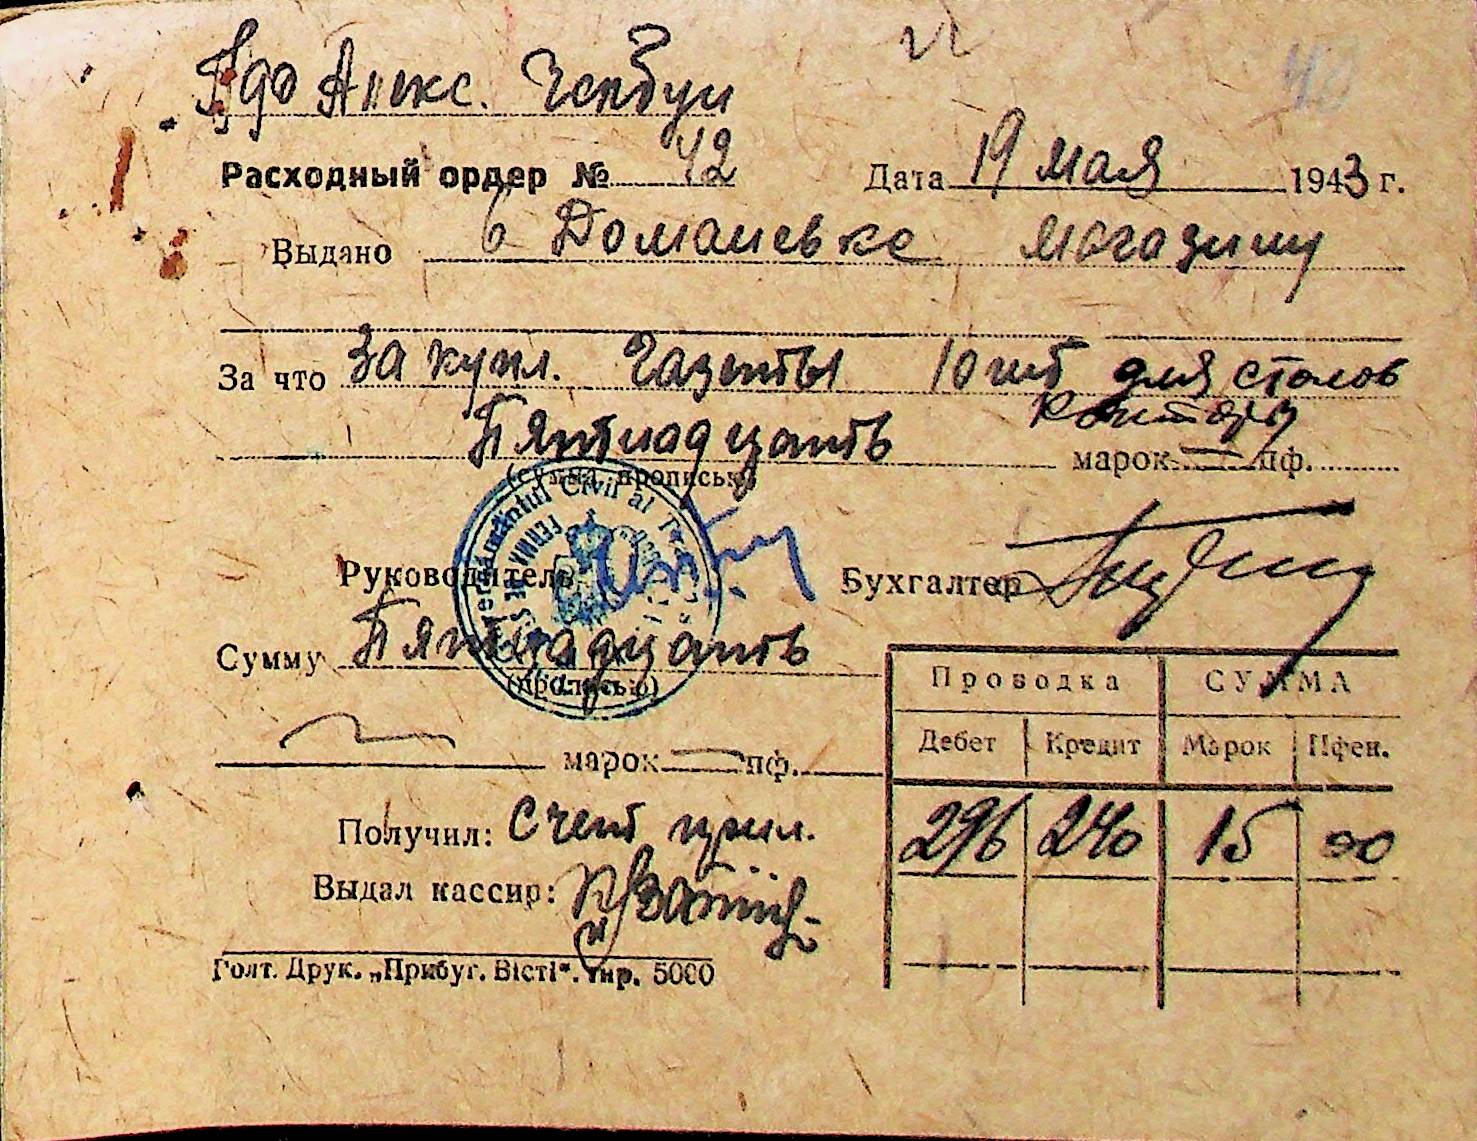 Гдо Алекс. Чербул
42
Расходный ордер № 42 Дата 19 мая 1943 г.
Выдано в Доманевке магазину
За что За купл. газеты 10 шт для столов
конторы
Пятнадцать марок — пф.
(сумма прописью)
Guvernământul Civil al
FERMA DE S
Руководитель Бухгалтер
Сумму Пятнадцать
(прописью)
марок — пф.
Проводка СУММА
Дебет Кредит Марок Пфен.
296 240 15 00
Получил: Счет прил.
Выдал кассир:
Голт. Друк. „Прибуг. Вісті". тир. 5000